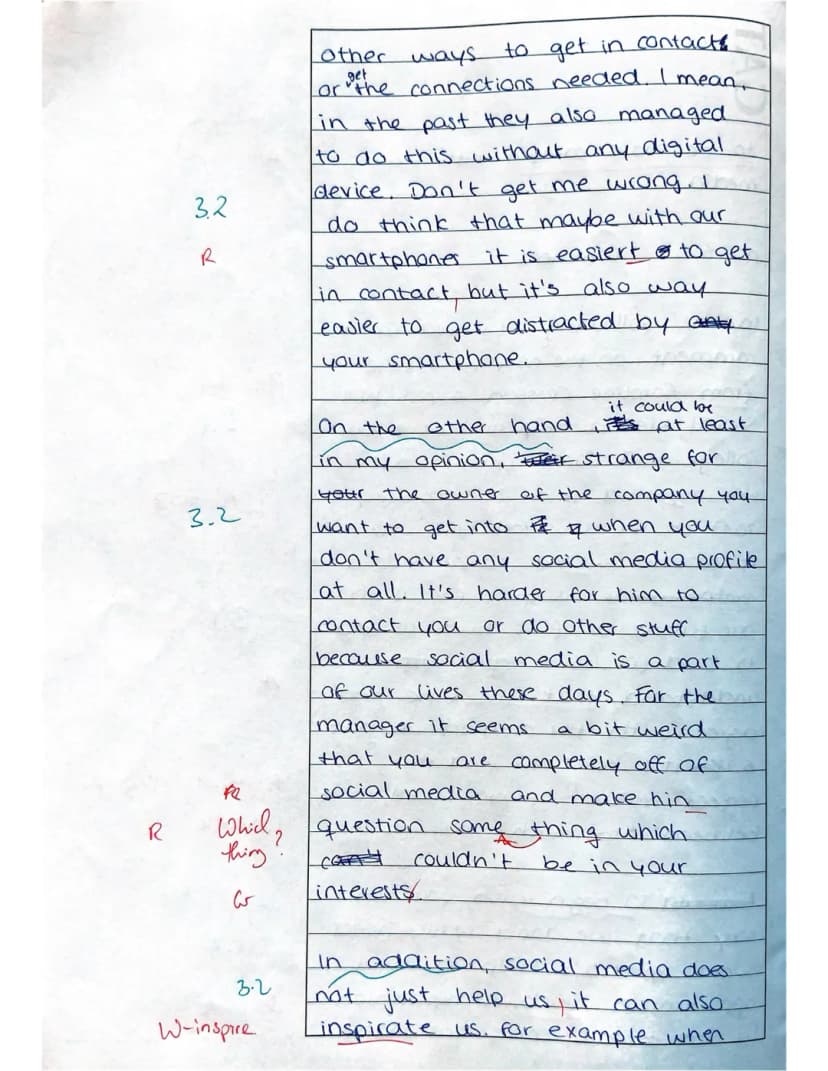 other ways to get in contact
get
or the connections needed. I mean,
in the past they also managed
to do this without any digital
device. Don't get me wrong. I
3.2
do think that maybe with our
R
smartphones it is easiert to get
in contact, but it's also way
easier to get distracted by
your smartphone.
it could be
On the other hand, at least
in my opinion, strange for
the owner of the company you
3.2
want to get into when you
don't have any social media profile
at all. It's harder for him to
contact you or do other stuff
because social media is a part
of our lives these days. For the
manager it seems a bit weird
that you are completely off of
R
social media and make hin
R Which thing?
question some thing which
couldn't be in your
Gr
interests
In addition, social media does
3.2
not just help us, it can also
W-inspire
inspirate us. For example when